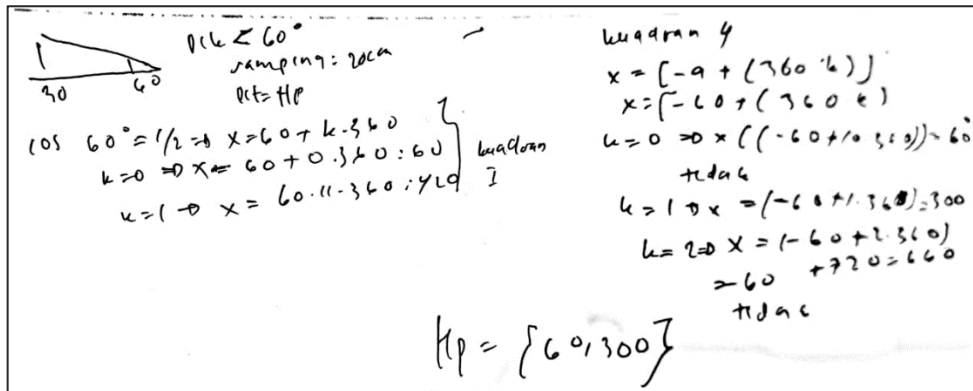 30 60
Dik < 60°
samping: 20cm
Dit= Hp
cos 60° = 1/2 => x = 60 + k.360
k=0 => x = 60 + 0.360 : 60
k=1 → x = 60.11-360 : 420
kuadran
I
kuadran 4
x = [-a + (360 k)]
x = [-60 + (360 k)
k=0 => x ((-60 + 10 360)) - 60°
tidak
k=1 => x = (-60 + 1.360) = 300
k=2 => x = (-60 + 2.360)
= 60 + 720 = 660
tidak
Hp = {60,300}